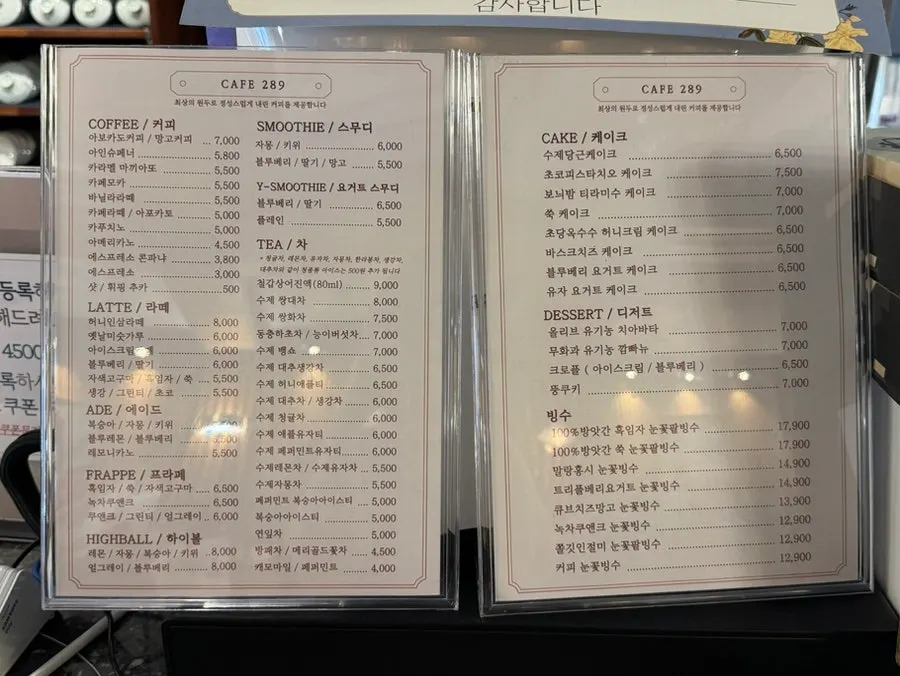 감사합니다
CAFE 289
최상의 원두로 정성스럽게 내린 커피를 제공합니다
COFFEE / 커피
아보카도커피 / 망고커피 .. 7,000
아인슈페너 5,800
카라멜 마끼아또 5,500
카페모카 5,500
바닐라라떼 5,500
카페라떼 / 아포카토 5,000
카푸치노 5,000
아메리카노 4,500
에스프레소 콘파냐 3,800
에스프레소 3,000
샷 / 휘핑 추가 500
LATTE / 라떼
허니인삼라떼 8,000
옛날미숫가루 6,000
아이스크림 라떼 6,000
블루베리 / 딸기 6,000
자색고구마 / 흑임자 / 쑥 5,500
생강 / 그린티 / 초코 5,500
ADE / 에이드
복숭아 / 자몽 / 키위
블루레몬 / 블루베리 5,500
레모니카노 5,500
FRAPPE / 프라페
흑임자 / 쑥 / 자색고구마 6,500
녹차쿠앤크 6,500
쿠앤크 / 그린티 / 얼그레이 6,000
HIGHBALL / 하이볼
레몬 / 자몽 / 복숭아 / 키위 8,000
얼그레이 / 블루베리 8,000
SMOOTHIE / 스무디
자몽 / 키위 6,000
블루베리 / 딸기 / 망고 5,500
Y-SMOOTHIE / 요거트 스무디
블루베리 / 딸기 6,500
플레인 5,500
TEA / 차
* 청귤차, 레몬차, 유자차, 자몽차, 한라봉차, 생강차,
대추차와 같이 청종류 아이스는 500원 추가 됩니다
철갑상어진액(80ml) 9,000
수제 쌍대차 8,000
수제 쌍화차 7,500
동충하초차 / 능이버섯차 7,000
수제 뱅쇼 7,000
수제 대추생강차 6,500
수제 허니애플티 6,500
수제 대추차 / 생강차 6,000
수제 청귤차 6,000
수제 애플유자티 6,000
수제 페퍼민트유자티 6,000
수제레몬차 / 수제유자차 5,500
수제자몽차 5,500
페퍼민트 복숭아아이스티 5,000
복숭아아이스티 5,000
연잎차 5,000
방패차 / 메리골드꽃차 4,500
캐모마일 / 페퍼민트 4,000
CAFE 289
최상의 원두로 정성스럽게 내린 커피를 제공합니다
CAKE / 케이크
수제당근케이크 6,500
초코피스타치오 케이크 7,500
보늬밤 티라미수 케이크 7,000
쑥 케이크 7,000
초당옥수수 허니크림 케이크 6,500
바스크치즈 케이크 6,500
블루베리 요거트 케이크 6,500
유자 요거트 케이크 6,500
DESSERT / 디저트
올리브 유기농 치아바타 7,000
무화과 유기농 깜빠뉴 7,000
크로플 ( 아이스크림 / 블루베리 ) 6,500
뚱쿠키 7,000
빙수
100%방앗간 흑임자 눈꽃팥빙수 17,900
100%방앗간 쑥 눈꽃팥빙수 17,900
말랑홍시 눈꽃빙수 14,900
트리플베리요거트 눈꽃빙수 14,900
큐브치즈망고 눈꽃빙수 13,900
녹차쿠앤크 눈꽃빙수 12,900
쫄깃인절미 눈꽃팥빙수 12,900
커피 눈꽃빙수 12,900